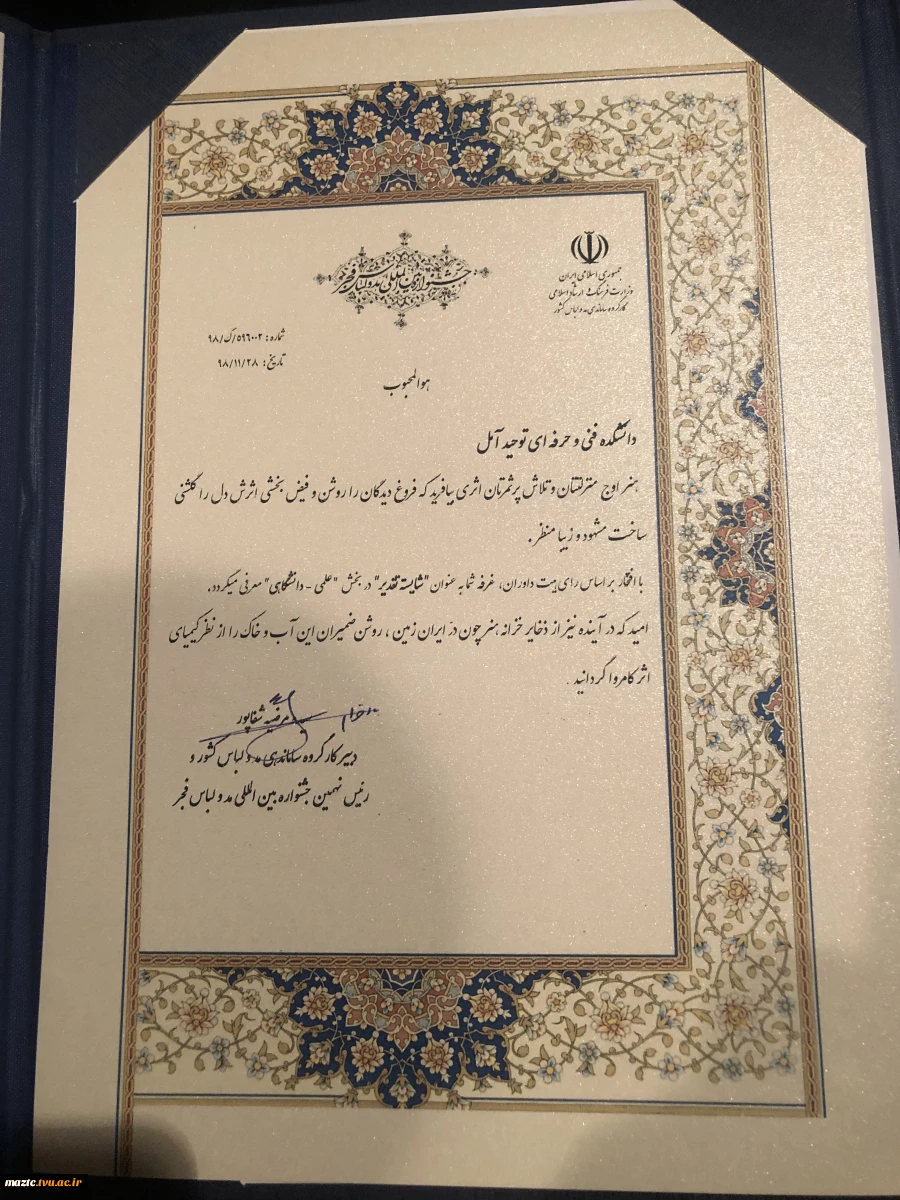 جمهوری اسلامی ایران
وزارت فرهنگ و ارشاد اسلامی
کارگروه ساماندهی مد و لباس کشور
جشنواره بین المللی مد و لباس فجر
شماره: ۵۹۶۰۰۲/ک/۹۸
تاریخ: ۹۸/۱۱/۲۸
هوالمحبوب
دانشکده فنی و حرفه ای توحید آمل
هنر اوج منزلتتان و تلاش پرثمرتان اثری بیافرید که فروغ دیدگان را روشن و فیض بخشی اثرش دل را گلشنی
ساخت مشهود و زیبا منظر.
با افتخار بر اساس رای هیت داوران، غرفه شما به عنوان "شایسته تقدیر" در بخش "علمی - دانشگاهی" معرفی میگردد.
امید که در آینده نیز از ذخایر خزانه هنر چون درّ ایران زمین، روشن ضمیران این آب و خاک را از نظر کیمیای
اثر کامروا گردانید.
مرضیه شفاپور
دبیر کارگروه ساماندهی مد و لباس کشور و
رئیس نهمین جشنواره بین المللی مد و لباس فجر
maztc.tvu.ac.ir